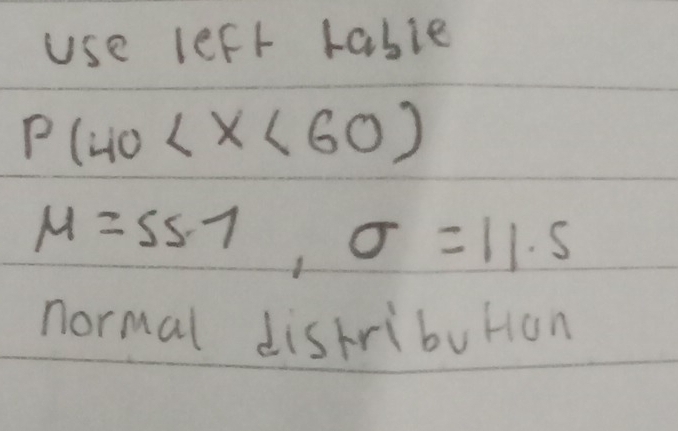 use left table
P(40 < X < 60)
μ = 55.1 , σ = 11.5
normal distribution